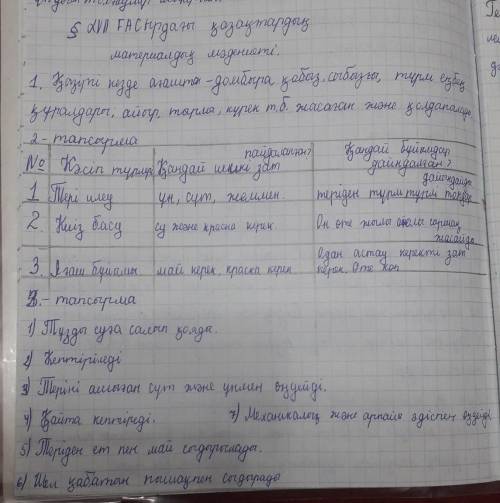 § XVII ҒАСЫРДАҒЫ қазақтардың
материалдық мәдениеті.
1. Қазіргі кезде ағашта - домбыра, қобыз, сыбызғы, түрлі еңбек
құралдары, айыр, тырма, күрек т.б. жасаған және қолданған
2 - тапсырма
№ Кәсіп түрлері Қандай шикі зат пайдаланған? Қандай бұйымдар дайындалған?
1 Тері илеу ұн, сүт, жөммен теріден түрлі түрлі тондар дайындайды
2 Киіз басу су және краска керек Ол өте жылы жасайды
3. Ағаш бұйымы май керек, краска керек Одан астау керекті зат керек. Өте көп
3. - тапсырма
1) Тұзды суға салып қояды.
2) Кептіріледі
3) Теріні ашыған сүт және ұнмен өңдейді.
4) Қайта кептіреді. 7) Механикалық және әдіспен өңдеді
5) Теріден ет пен май сыдырылады.
6) Шел қабатын пышақпен сыдырады